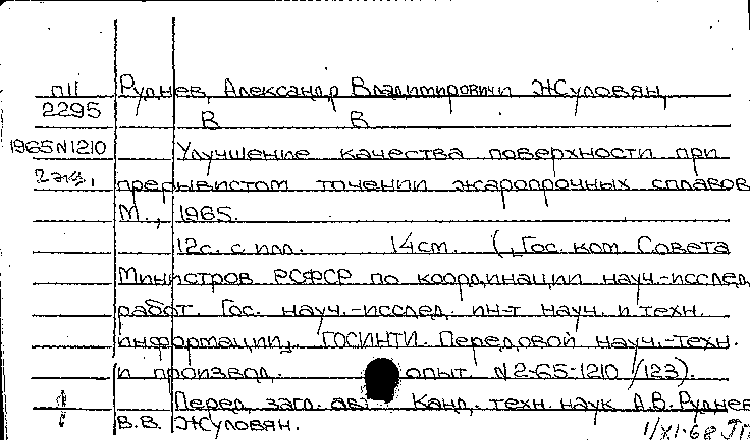 П11 Руднев, Александр Владимирович и Жуловян,
2295
В В
1965 N1210 Улучшение качества поверхности при
2 экз. прерывистом точении жаропрочных сплавов
М., 1965.
12с. с илл. 14см. (Гос. ком. Совета
Министров РСФСР по координации науч.-исслед.
работ. Гос. науч.-исслед. ин-т науч. и техн.
информации, ГОСИНТИ. Передовой науч.-техн.
и производ. опыт. N2-65-1210/123).
Перед загл. авт. Канд. техн. наук А.В. Руднев
В.В. Жуловян.
1/XI-68